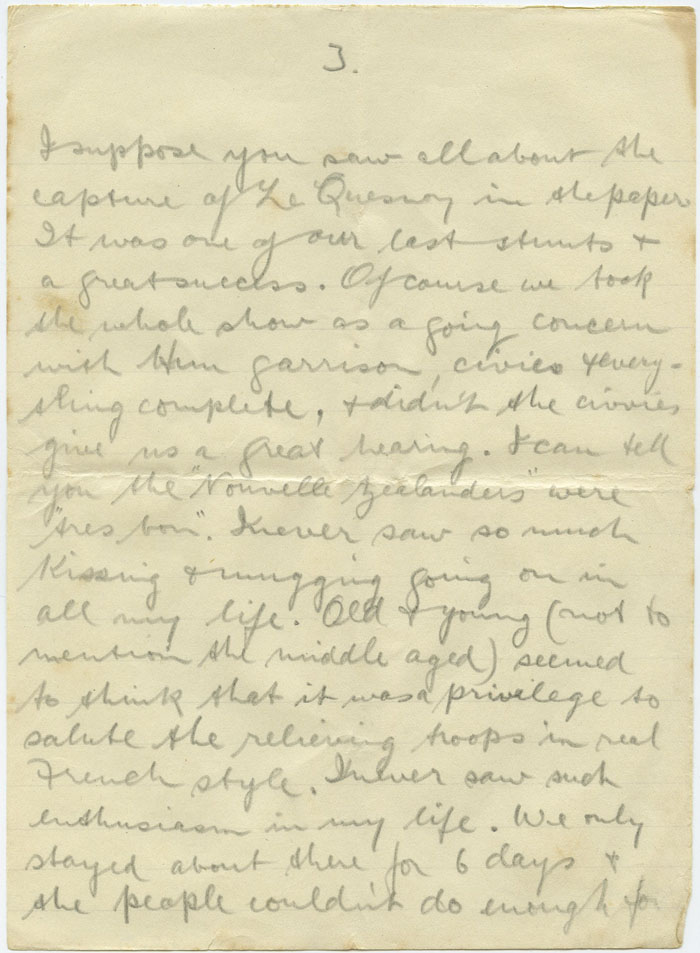 3.
I suppose you saw all about the
capture of Le Quesnoy in the paper
It was one of our last stunts &
a great success. Of course we took
the whole show as a going concern
with Hun garrison, civies & every-
thing complete, & didn't the civvies
give us a great hearing. I can tell
you the "Nouvelle Zealanders" were
"tres bon". I never saw so much
Kissing & mugging going on in
all my life. Old & young (not to
mention the middle aged) seemed
to think that it was a privilege to
salute the relieving troops in real
French style. I never saw such
enthusiasm in my life. We only
stayed about there for 6 days &
the people couldn't do enough for